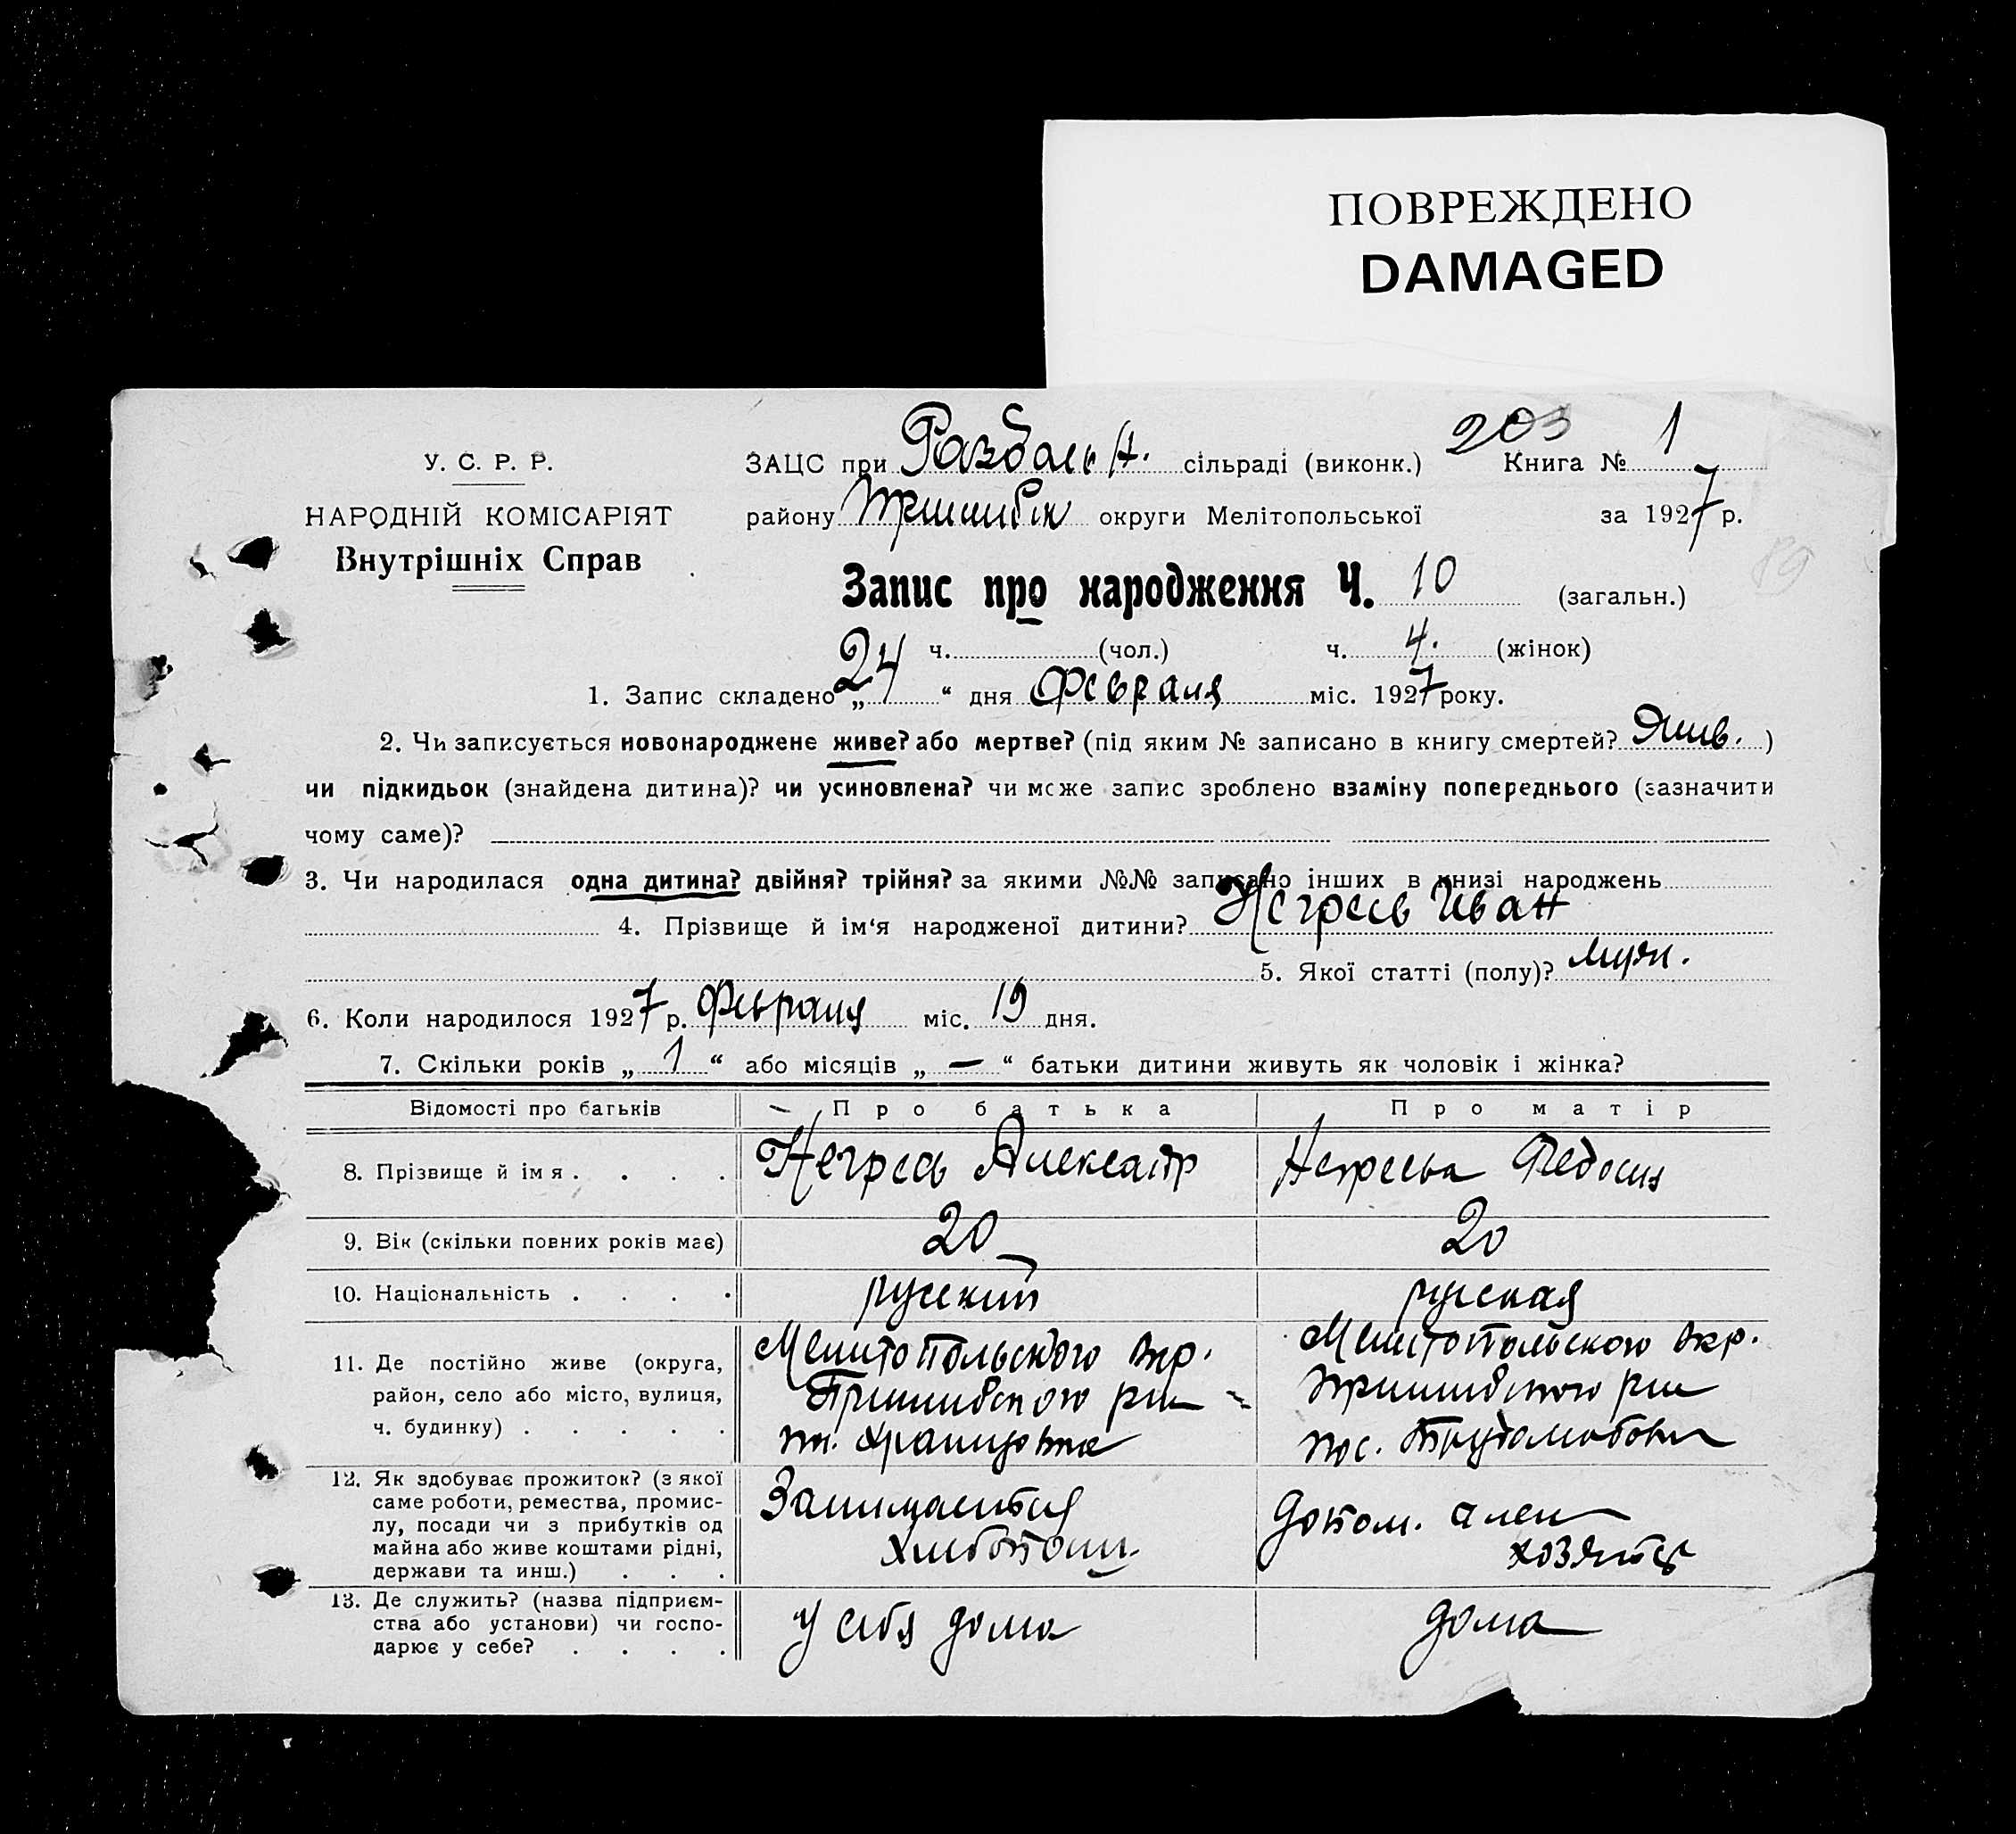 ПОВРЕЖДЕНО
DAMAGED
У. С. Р. Р.
НАРОДНІЙ КОМІСАРІЯТ
Внутрішніх Справ
ЗАЦС при сільраді (виконк.) 203 Книга № 1
району Пришибск округи Мелітопольської за 1927 р.
89
Запис про народження Ч. 10 (загальн.)
ч. (чол.) ч. 4. (жінок)
1. Запис складено „ 24 “ дня Февраля міс. 1927 року.
2. Чи записується новонароджене живе? або мертве? (під яким № записано в книгу смертей? )
чи підкидьок (знайдена дитина)? чи усиновлена? чи може запис зроблено взаміну попереднього (зазначити
чому саме)?
3. Чи народилася одна дитина? двійня? трійня? за якими №№ записано інших в книзі народжень
4. Прізвище й ім‘я народженої дитини? Негреев Иван
5. Якої статті (полу)? муж.
6. Коли народилося 1927 р. Февраля міс. 19 дня.
7. Скільки років „ 1 “ або місяців „ — “ батьки дитини живуть як чоловік і жінка?
Відомості про батьків Про батька Про матір
8. Прізвище й ім я . . . . Негреев Александр Негреева Федосия
9. Вік (скільки повних років має) 20 20
10. Національність . . . . русский русская
11. Де постійно живе (округа,
район, село або місто, вулиця,
ч. будинку) . . . . .
Мелитопольского окр.
Пришибского р-на
Мелитопольского окр.
Пришибского р-на
пос. Трудолюбовка
12. Як здобуває прожиток? (з якої
саме роботи, ремества, промис-
лу, посади чи з прибутків од
майна або живе коштами рідні,
держави та инш.) . . .
Занимается
хлебопаш.
член
хозяйства
13. Де служить? (назва підприєм-
ства або установи) чи госпо-
дарює у себе? . . . .
у себя дома
дома